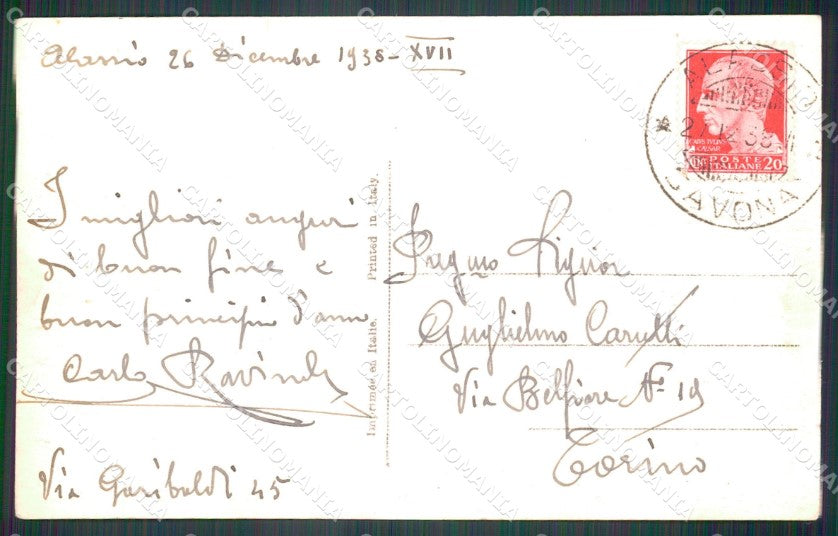 Alassio 26 Dicembre 1938-XVII
I migliori auguri
di buon fine e
buon principio d'anno
Carlo
Via Garibaldi 45
Imprimée en Italie. Printed in Italy.
ALASSIO
SAVONA
CAIVS IVLIVS
CAESAR
POSTE
ITALIANE
20
Pregmo Signor
Guglielmo Carutti
Via Belfiore N° 19
Torino
CARTOLINOMANIA